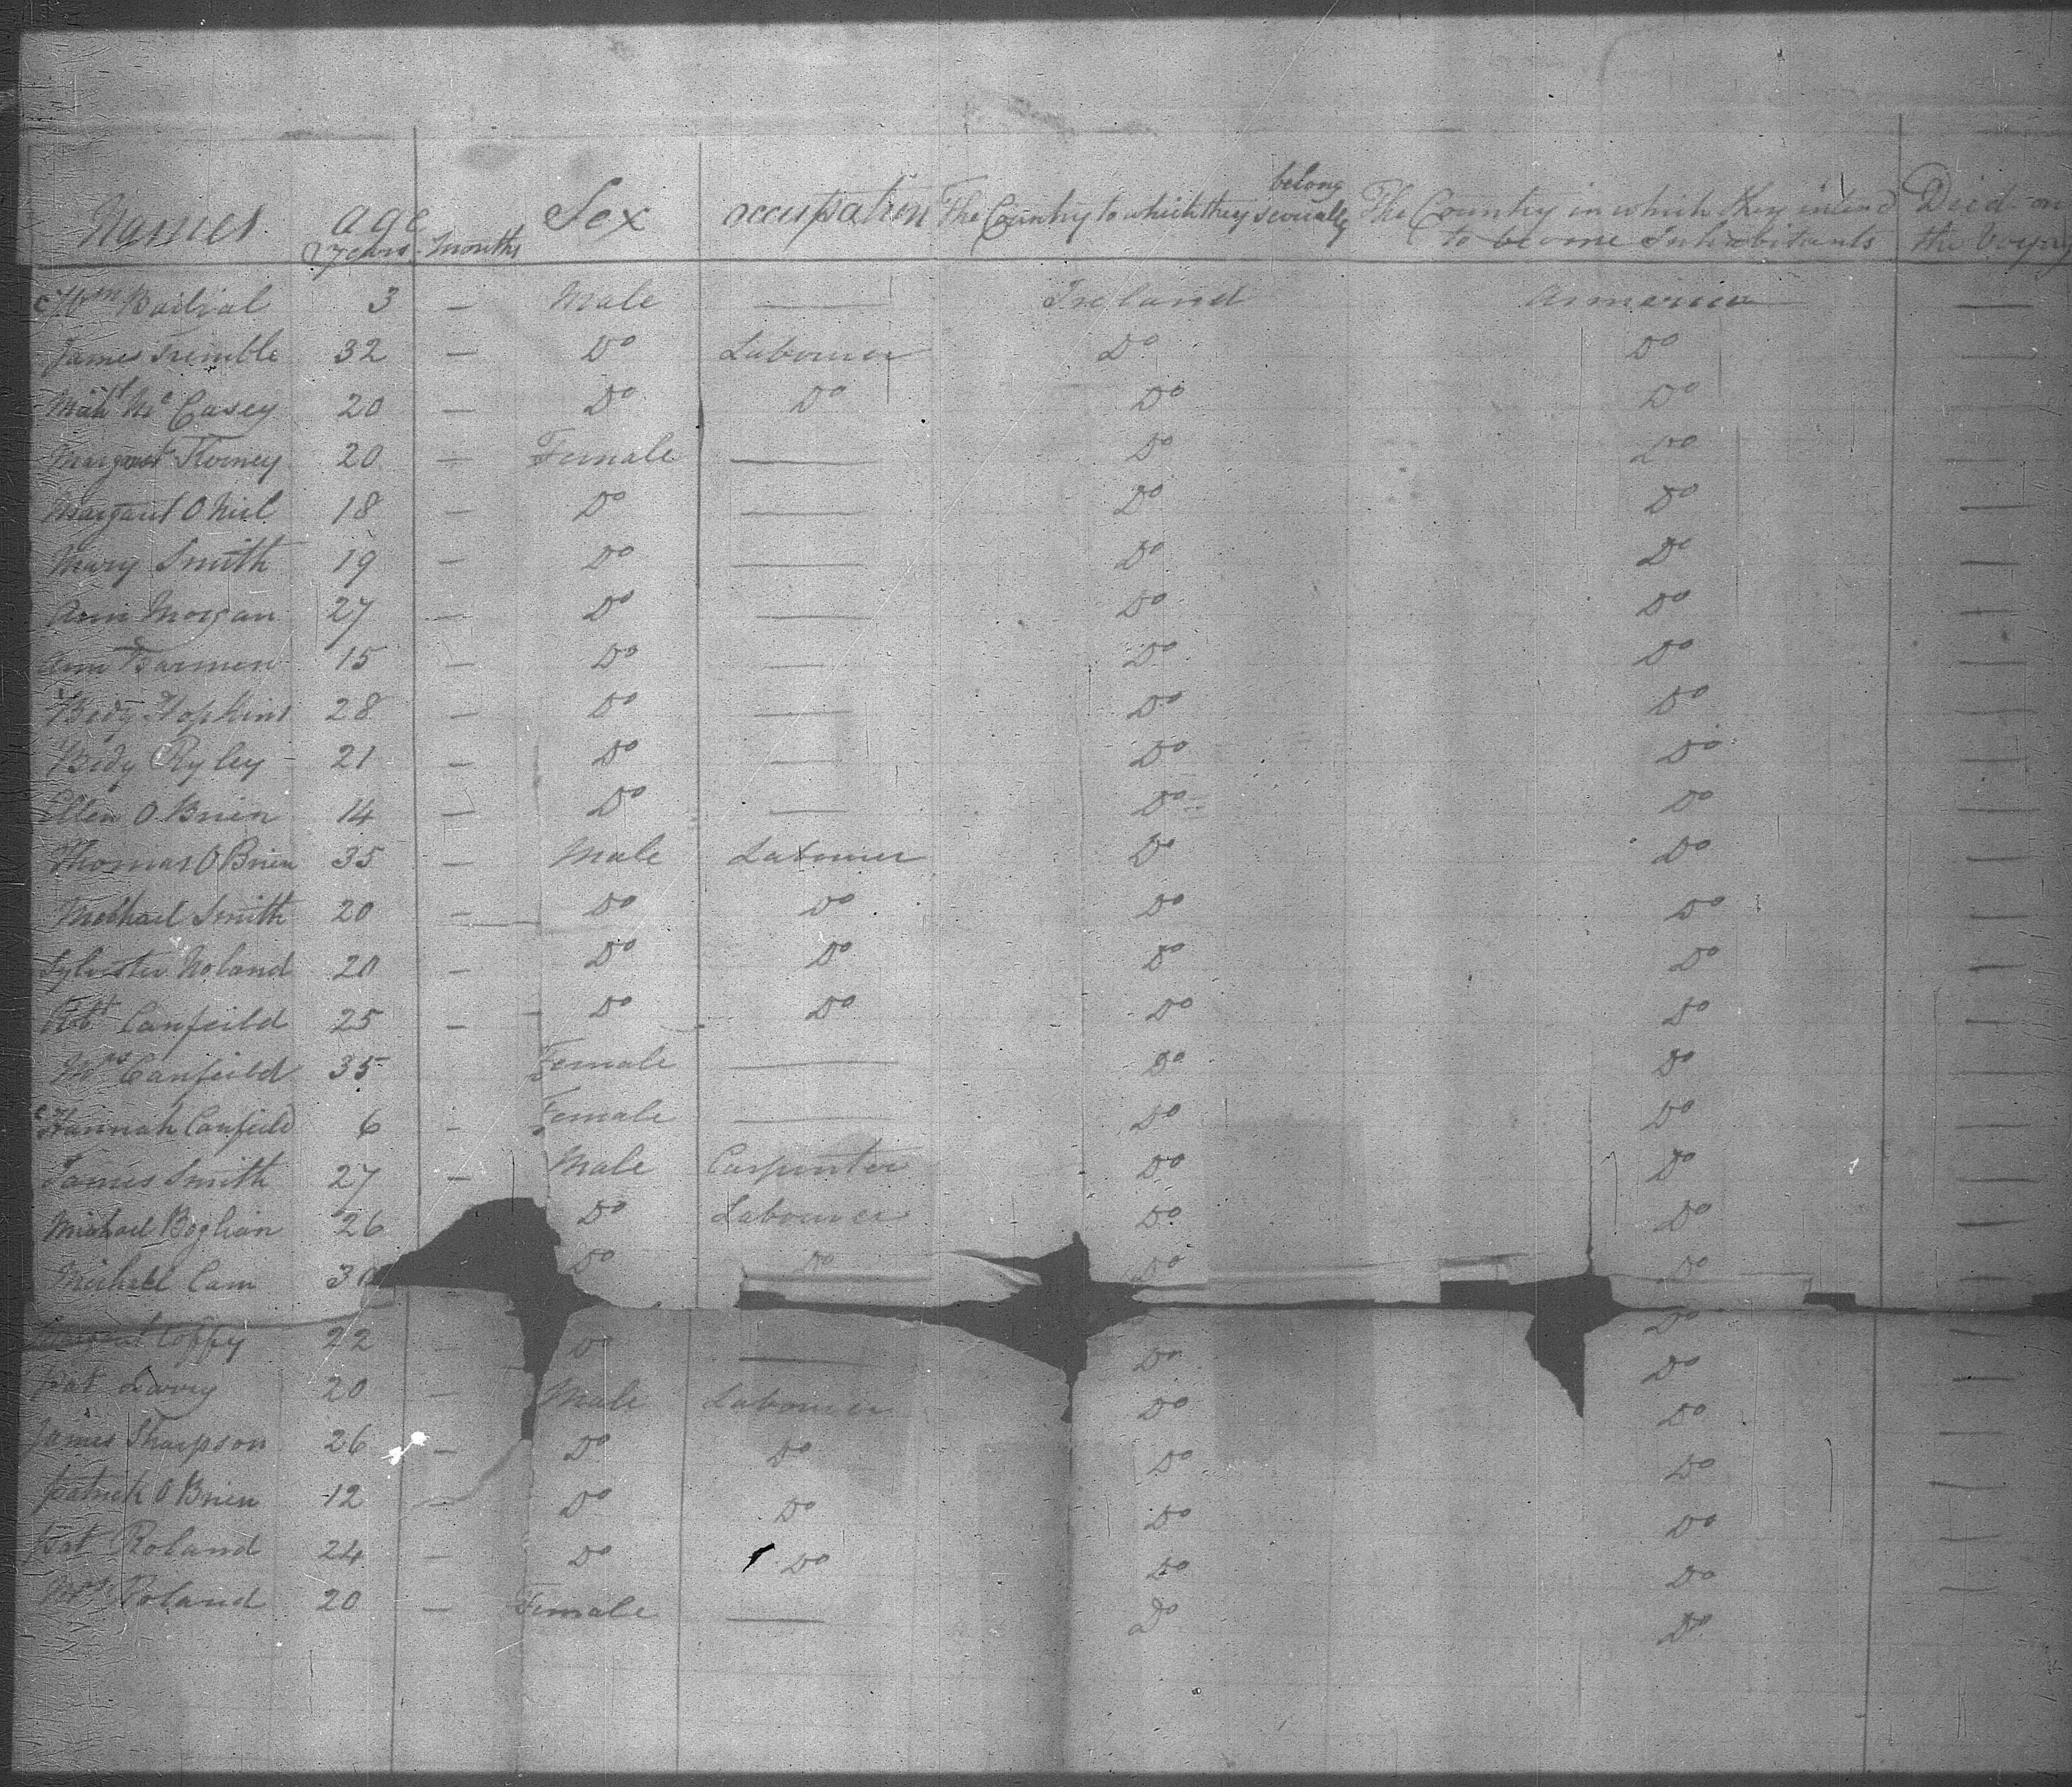 belong
Names age Sex occupation The Country to which they severally The Country in which they intend Died on
years months to become Inhabitants the Voyag
Wm 3 — Male — Ireland America —
James Tremble 32 — Do Labourer Do Do —
Mc Casey 20 — Do Do Do Do —
Margaret 20 — Female — Do Do —
Margaret O Niel 18 — Do — Do Do —
Mary Smith 19 — Do — Do Do —
Ann Morgan 27 — Do — Do Do —
Ann 15 — Do — Do Do —
Bidy Hopkins 28 — Do — Do Do —
Bidy Ryley 21 — Do — Do Do —
Ellen O Brien 14 — Do — Do Do —
Thomas O Brien 35 — Male Labourer Do Do —
Michael Smith 20 — Do Do Do Do —
Sylvester Noland 20 — Do Do Do Do —
Robt Canfeild 25 — Do Do Do Do —
Mrs Canfeild 35 Female — Do Do —
Hannah Canfeild 6 — Female — Do Do —
James Smith 27 — Male Carpenter Do Do —
Michael Boglian 26 Do Labourer Do Do —
Michael Cam 30 Do Do Do Do —
Coffy 22 — Do — Do Do —
Pat 20 — Male Labourer Do Do —
James Sharpson 26 — Do Do Do Do —
Patrick O Brien 12 — Do Do Do Do —
Pat Roland 24 — Do Do Do Do —
Mrs Roland 20 — Female — Do Do —